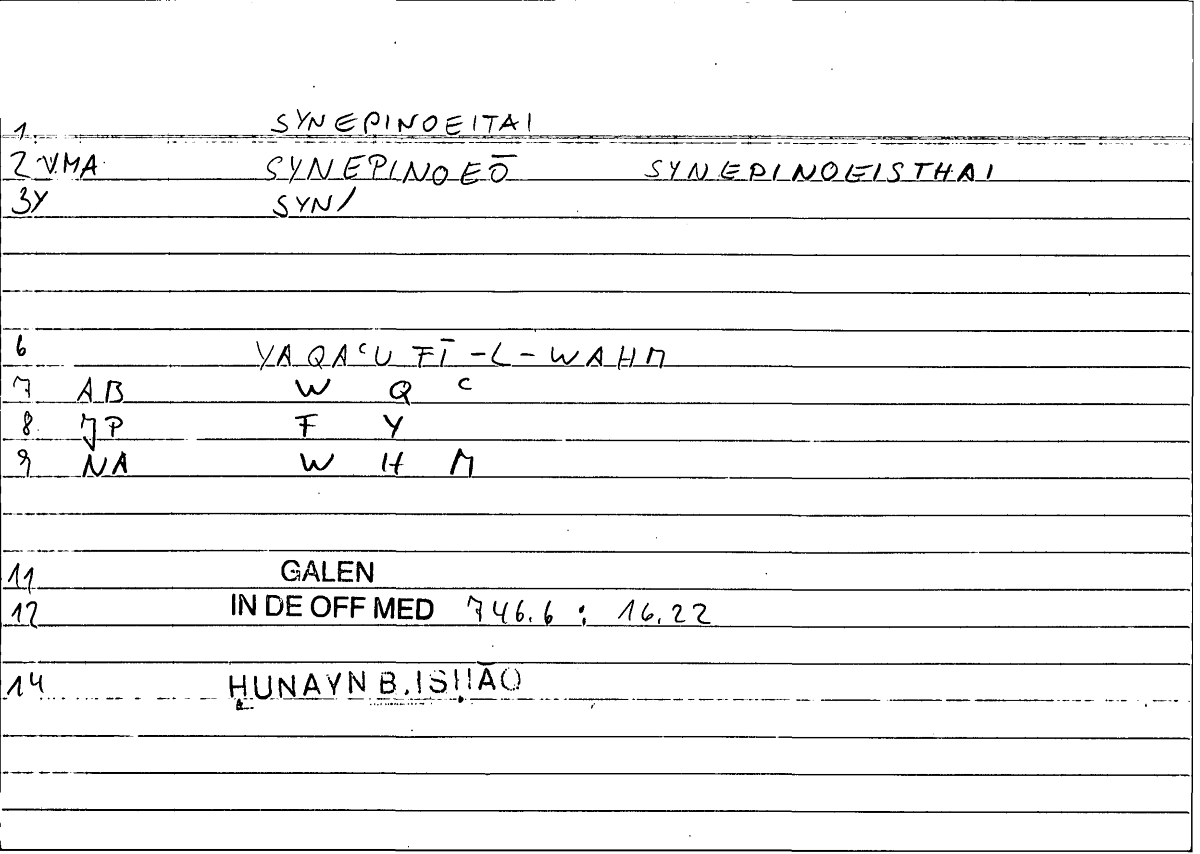 1. SYNEPINOEITAI
2 VMA SYNEPINOEŌ SYNEPINOEISTHAI
3Y SYN/
6 YAQAʿU FĪ-L-WAHM
7 AB W Q ʿ
8 JP F Y
9 NA W H M
11 GALEN
12 IN DE OFF MED 746.6 : 16.22
14 ḤUNAYN B.ISḤĀQ